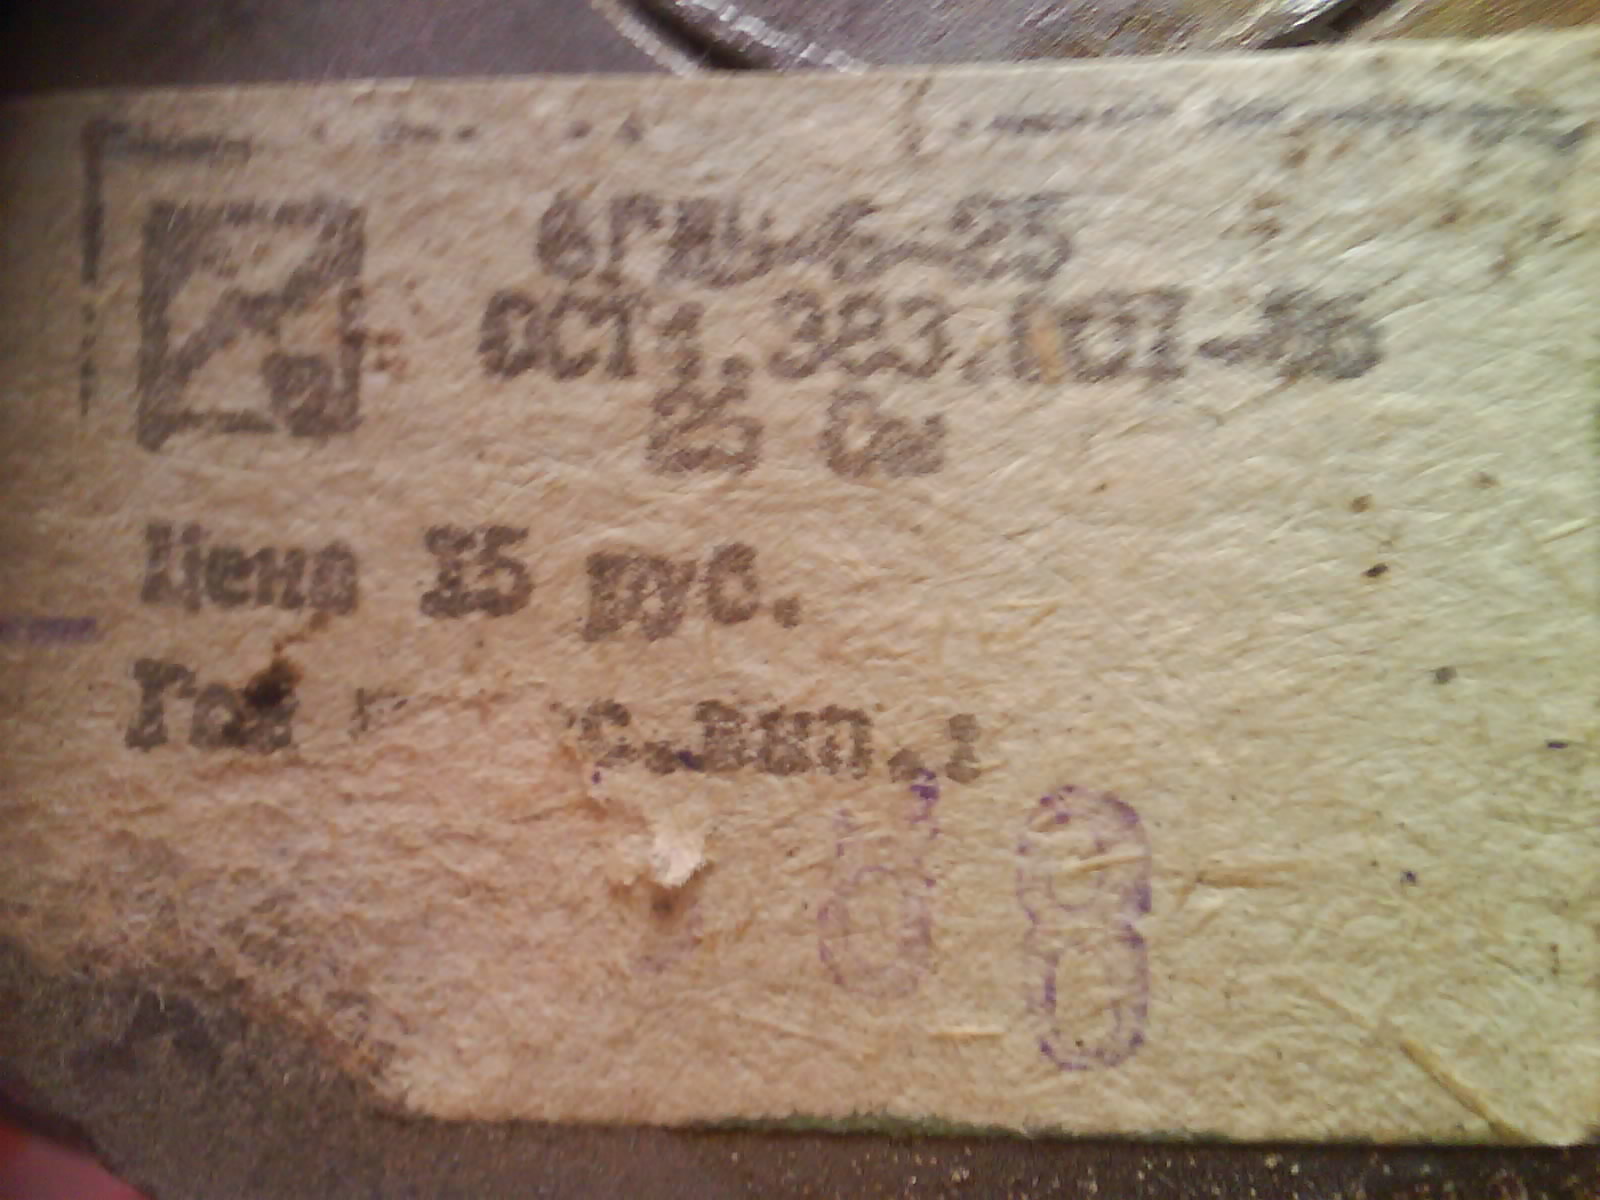 6ГДШ-5-25
ОСТ4.383.001-85
25 Ом
Цена 15 руб.
Год вып.:
88